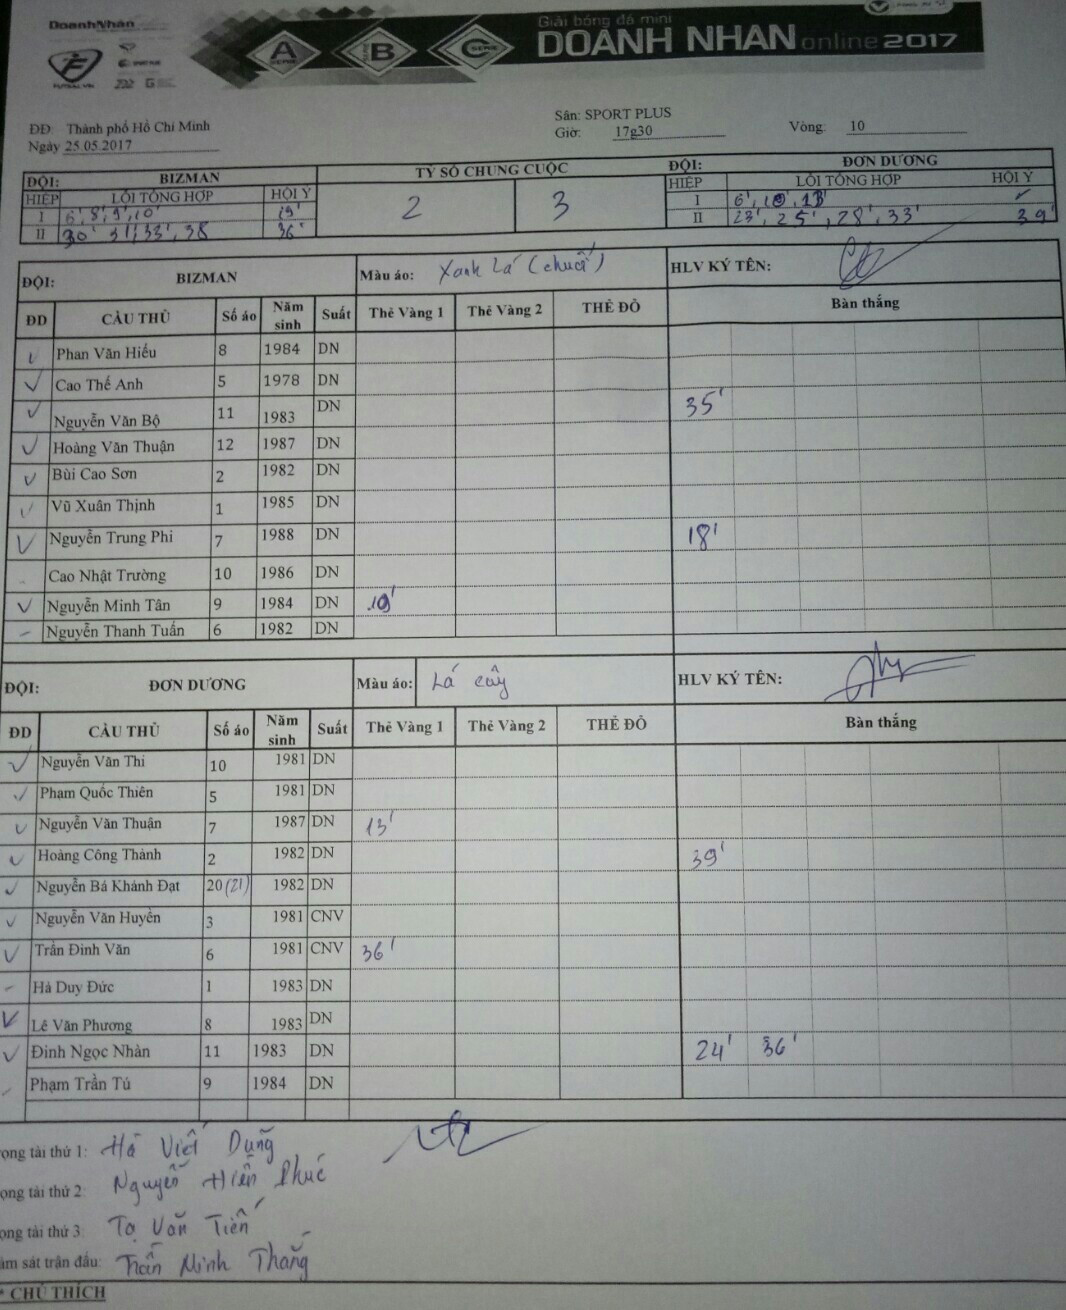 DoanhNhân
FUTSAL.VN
A SERIE
B
C SERIE
Giải bóng đá mini
DOANH NHÂN online 2017
ĐĐ: Thành phố Hồ Chí Minh
Ngày 25.05.2017
Sân: SPORT PLUS
Giờ: 17g30
Vòng: 10
ĐỘI: BIZMAN TỶ SỐ CHUNG CUỘC ĐỘI: ĐƠN DƯƠNG
HIỆP LỖI TỔNG HỢP HỘI Ý 2 3 HIỆP LỖI TỔNG HỢP HỘI Ý
I 6', 8', 9', 10' 19' I 6', 10', 13' ✓
II 30' 31', 33', 38 36' II 23', 25', 28', 33' 39'
ĐỘI: BIZMAN Màu áo: Xanh Lá (chuối) HLV KÝ TÊN:
ĐD CẦU THỦ Số áo Năm sinh Suất Thẻ Vàng 1 Thẻ Vàng 2 THẺ ĐỎ Bàn thắng
✓ Phan Văn Hiếu 8 1984 DN
✓ Cao Thế Anh 5 1978 DN
✓ Nguyễn Văn Bộ 11 1983 DN 35'
✓ Hoàng Văn Thuận 12 1987 DN
✓ Bùi Cao Sơn 2 1982 DN
✓ Vũ Xuân Thịnh 1 1985 DN
✓ Nguyễn Trung Phi 7 1988 DN 18'
Cao Nhật Trường 10 1986 DN
✓ Nguyễn Minh Tân 9 1984 DN 19'
- Nguyễn Thanh Tuấn 6 1982 DN
ĐỘI: ĐƠN DƯƠNG Màu áo: Lá cây HLV KÝ TÊN:
ĐD CẦU THỦ Số áo Năm sinh Suất Thẻ Vàng 1 Thẻ Vàng 2 THẺ ĐỎ Bàn thắng
✓ Nguyễn Văn Thi 10 1981 DN
✓ Phạm Quốc Thiên 5 1981 DN
✓ Nguyễn Văn Thuận 7 1987 DN 13'
✓ Hoàng Công Thành 2 1982 DN 39'
✓ Nguyễn Bá Khánh Đạt 20 (21) 1982 DN
✓ Nguyễn Văn Huyền 3 1981 CNV
✓ Trần Đình Văn 6 1981 CNV 36'
- Hà Duy Đức 1 1983 DN
✓ Lê Văn Phương 8 1983 DN
✓ Đinh Ngọc Nhàn 11 1983 DN 24' 36'
- Phạm Trần Tú 9 1984 DN
ọng tài thứ 1: Hà Viết Dũng
ọng tài thứ 2: Nguyễn Hiền Phúc
ọng tài thứ 3: Tạ Văn Tiến
ám sát trận đấu: Trần Minh Thắng
* CHÚ THÍCH